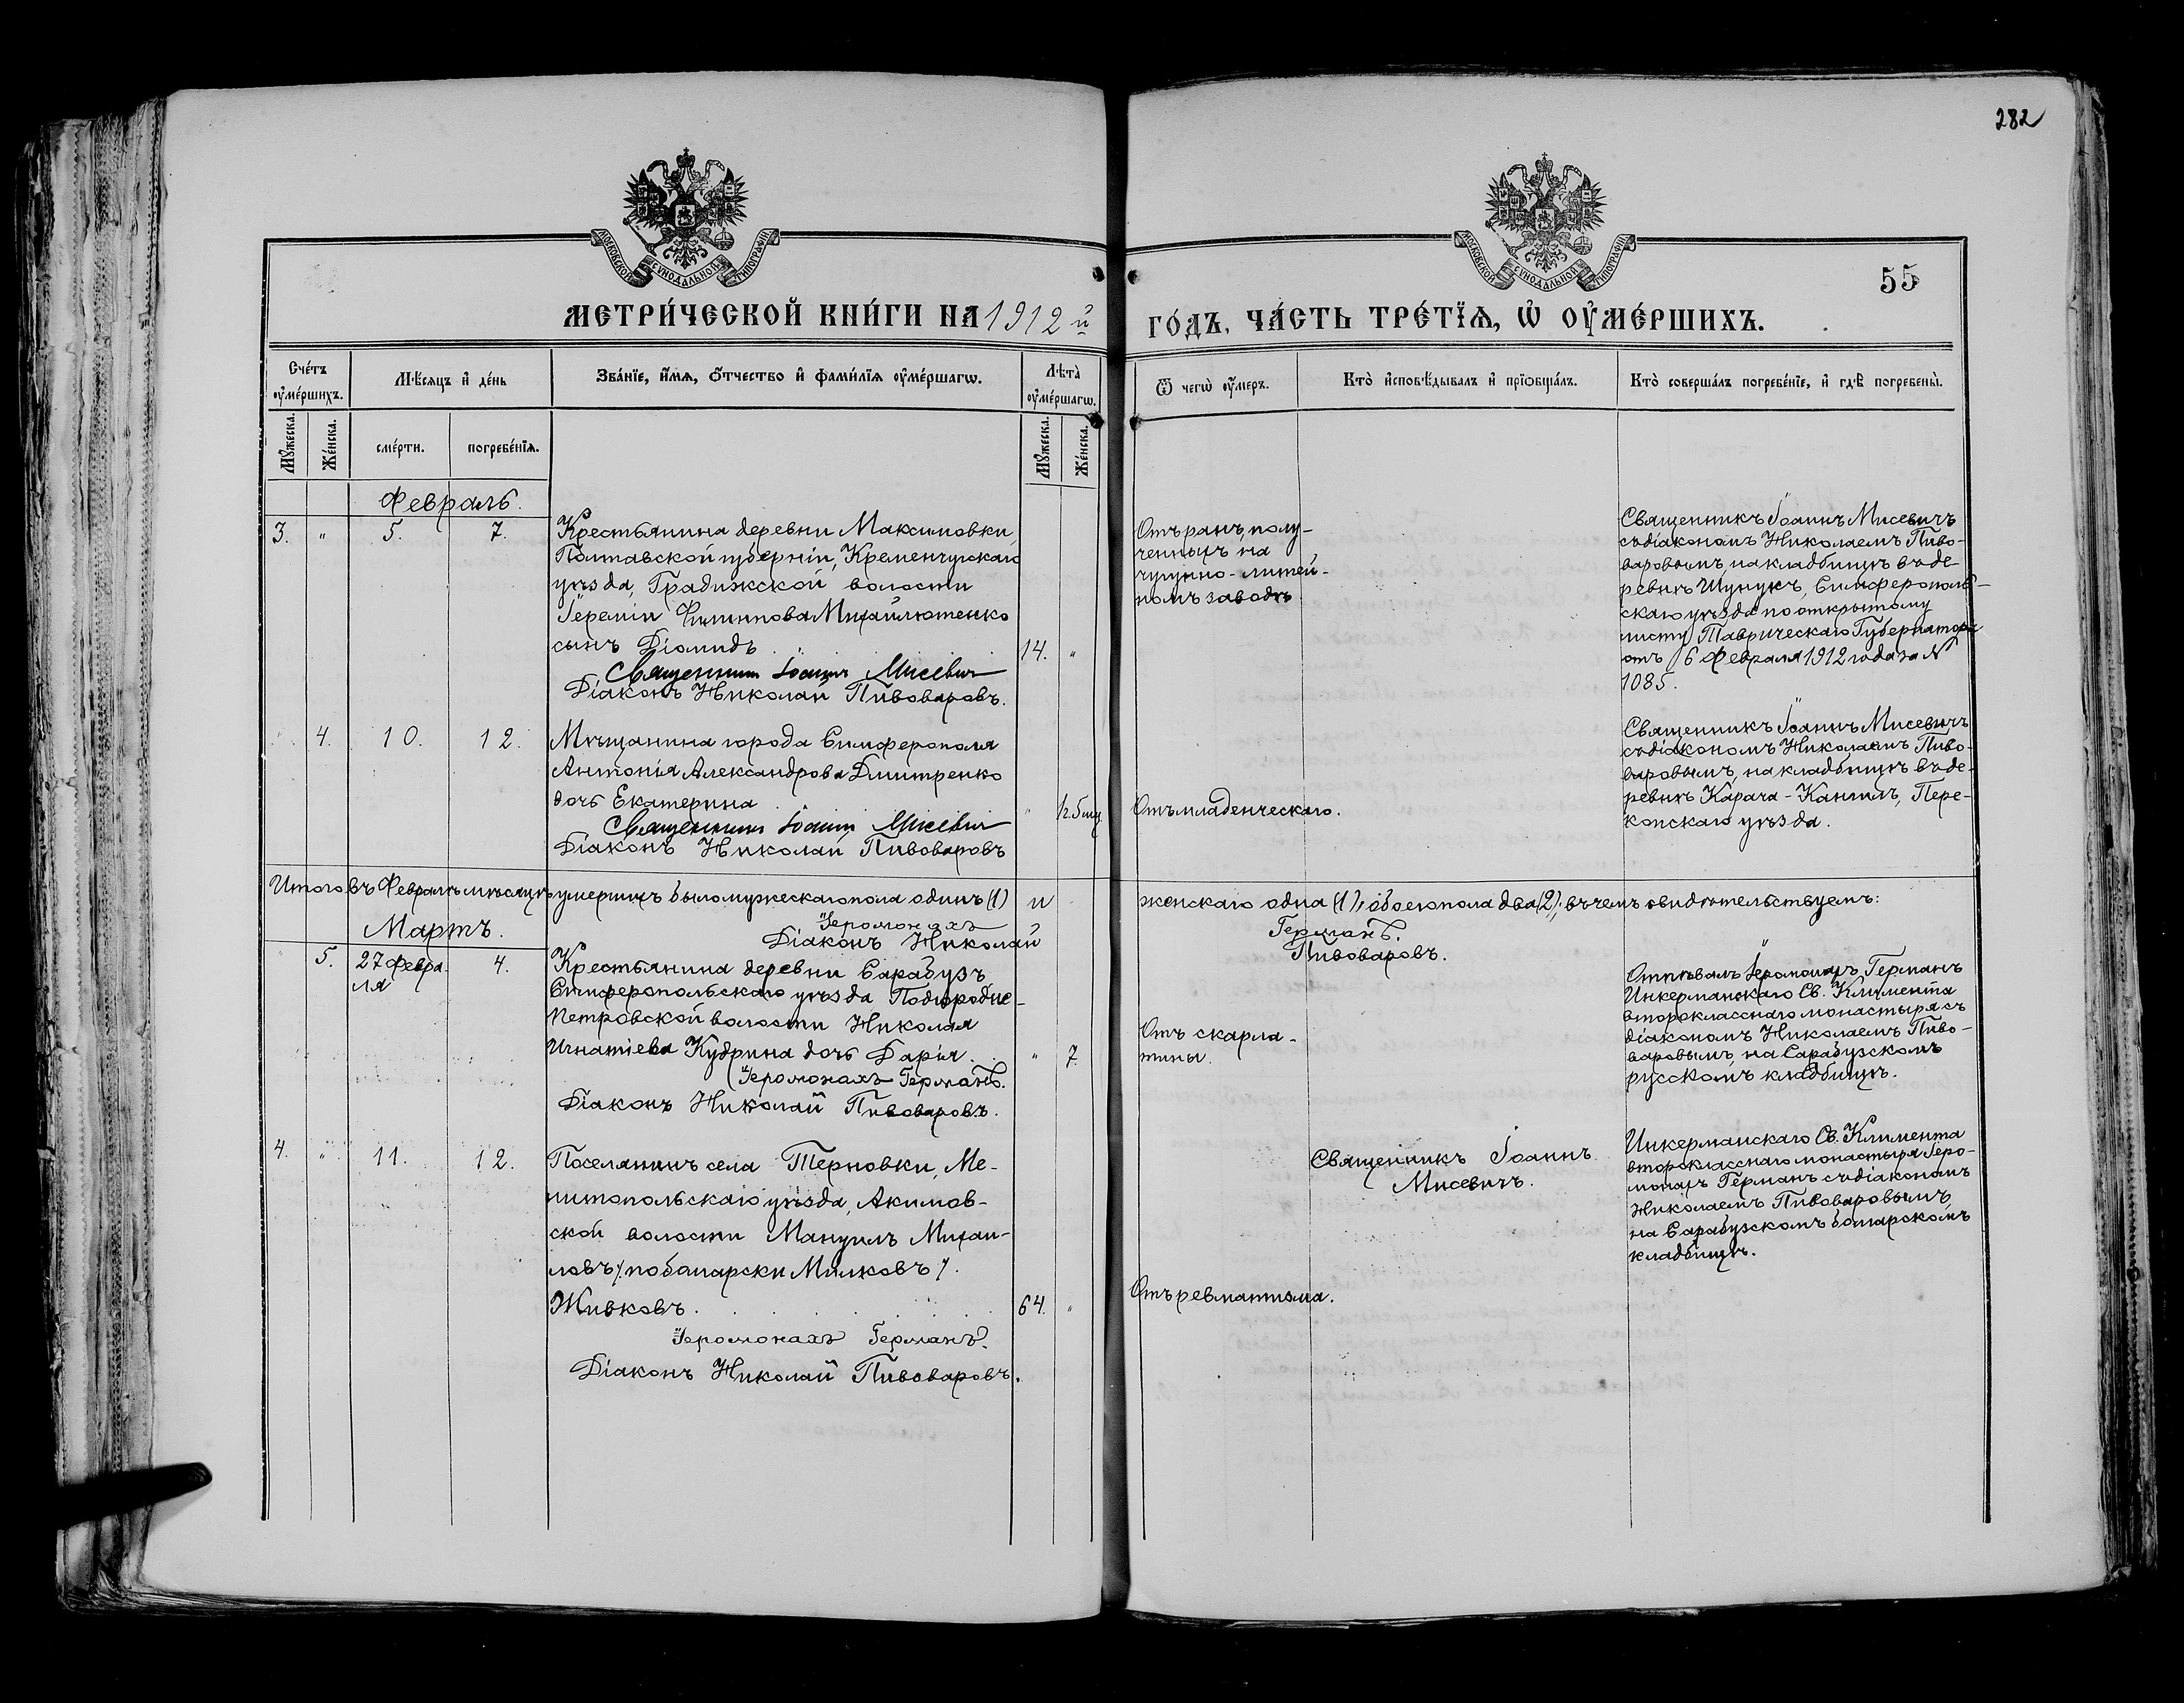 282
МОСКОВСКОЙ СѴНОДАЛЬНОЙ ТИПОГРАФІИ
МОСКОВСКОЙ СѴНОДАЛЬНОЙ ТИПОГРАФІИ
55
МЕТРИ́ЧЕСКОЙ КНИ́ГИ НА 1912 й
ГО́ДЪ, ЧА́СТЬ ТРЕ́ТЇѦ, Ѡ҆ ОУ҆МЕ́РШИХЪ.
Счетъ оумершихъ.
Мѣсяцъ и день
Званїе, имя, отчество и фамилїя оумершагѡ.
Лѣта оумершагѡ.
Ѿ чегѡ оумеръ.
Кто исповѣдывалъ и прїобщалъ.
Кто совершалъ погребенїе, и гдѣ погребены.
Мужеска.
Женска.
смерти.
погребенїя.
Мужеска.
Женска.
Февраль.
3. " 5. 7.
Крестьянина деревни Максимовки
Полтавской губерніи, Кременчугскаго
уѣзда, Градижской волости
Іереміи Филиппова Михайлютенко
сынъ Діомидъ
14. "
Священникъ Іоаннъ Мисевич
Діаконъ Николай Пивоваровъ.
Отъ ранъ, полу-
ченныхъ на
чугунно-литей-
номъ заводѣ
Священникъ Іоаннъ Мисевичъ
съ діакономъ Николаемъ Пиво-
варовымъ, на кладбищѣ въ де-
ревнѣ Шунукъ, Симферополь-
скаго уѣзда по открытому
листу Таврическаго Губернатора
отъ 6 Февраля 1912 года за №
1085.
" 4. 10. 12.
Мѣщанина города Симферополя
Антонія Александрова Дмитренко
дочь Екатерина
"
Священникъ Іоаннъ Мисевич
Діаконъ Николай Пивоваровъ
Отъ младенческаго.
Священникъ Іоаннъ Мисевичъ
съ діакономъ Николаемъ Пиво-
варовымъ, на кладбищѣ въ де-
ревнѣ Карача-Кангилъ, Пере-
копскаго уѣзда.
Итого въ Февралѣ мѣсяцѣ умершихъ было мужескаго пола одинъ (1) и женскаго одна (1), обоего пола два (2); въ чемъ свидѣтельствуемъ:
Іеромонахъ Германъ.
Діаконъ Николай Пивоваровъ.
Мартъ.
" 5. 27 февра-
ля
4.
Крестьянина деревни Сарабузъ
Симферопольскаго уѣзда Подгородне-
Петровской волости Николая
Игнатіева Кудрина дочь Дарія.
" 7.
Іеромонахъ Германъ.
Діаконъ Николай Пивоваровъ.
Отъ скарла-
тины.
Отпѣвалъ Іеромонахъ Германъ
Инкерманскаго Св. Климента
второкласснаго монастыря съ
діакономъ Николаемъ Пиво-
варовымъ, на Сарабузскомъ
русскомъ кладбищѣ.
4. " 11. 12.
Поселянинъ села Терновки, Ме-
литопольскаго уѣзда, Акимов-
ской волости Мануилъ Михаи-
ловъ /по болгарски Милковъ/.
Живковъ.
64. "
Іеромонахъ Германъ.
Діаконъ Николай Пивоваровъ.
Отъ ревматизма.
Священникъ Іоаннъ
Мисевичъ.
Инкерманскаго Св. Климента
второкласснаго монастыря Іеро-
монахъ Германъ съ діакономъ
Николаемъ Пивоваровымъ
на Сарабузскомъ болгарскомъ
кладбищѣ.